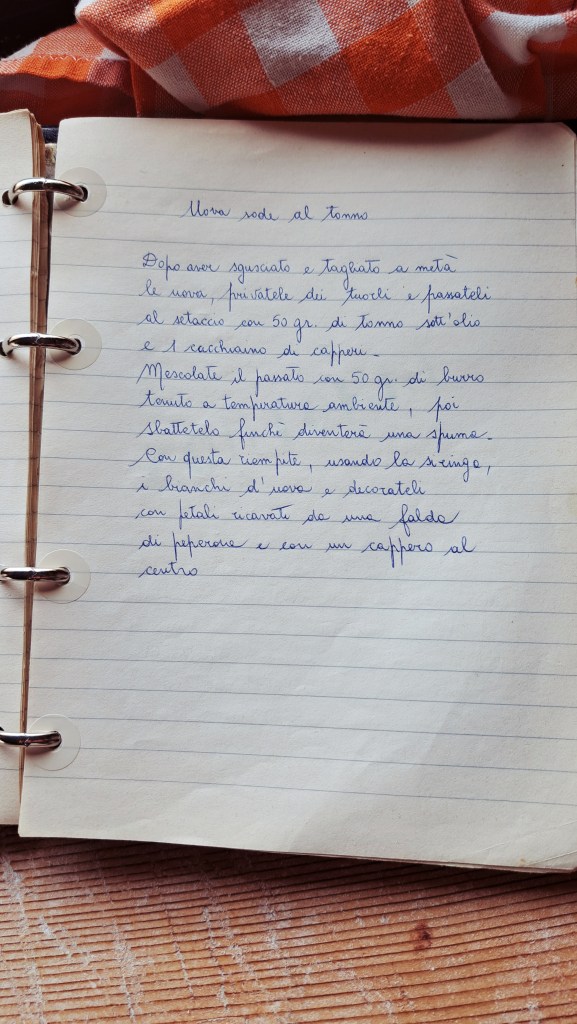 Uova sode al tonno
Dopo aver sgusciato e tagliato a metà
le uova, privatele dei tuorli e passateli
al setaccio con 50 gr. di tonno sott'olio
e 1 cucchiaino di capperi.
Mescolate il passato con 50 gr. di burro
tenuto a temperatura ambiente, poi
sbattetelo finchè diventerà una spuma.
Con questa riempite, usando la siringa,
i bianchi d'uova e decorateli
con petali ricavati da una falda
di peperone e con un cappero al
centro